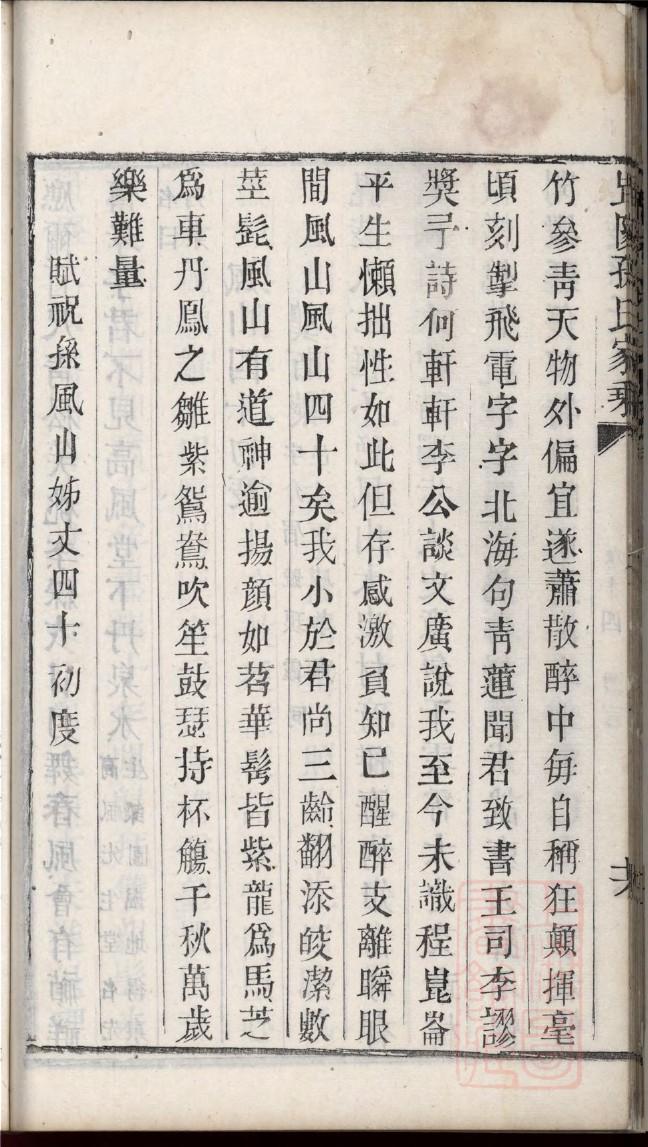 毘陵孫氏家乘
竹參青天物外偏宜遂蕭散醉中每自稱狂顛揮毫
頃刻掣飛電字字北海句青蓮聞君致書王司李謬
獎予詩何軒軒李公談文廣說我至今未識程崑崙
平生懶拙性如此但存感激負知已醒醉支離瞬眼
間風山風山四十矣我小於君尚三齡翻添皎潔數
莖髭風山有道神逾揚顏如苕華髩皆紫龍爲馬芝
爲車丹鳳之雛紫鴛鴦吹笙鼓瑟持杯觴千秋萬歲
樂難量
賦祝孫風山姊丈四十初度